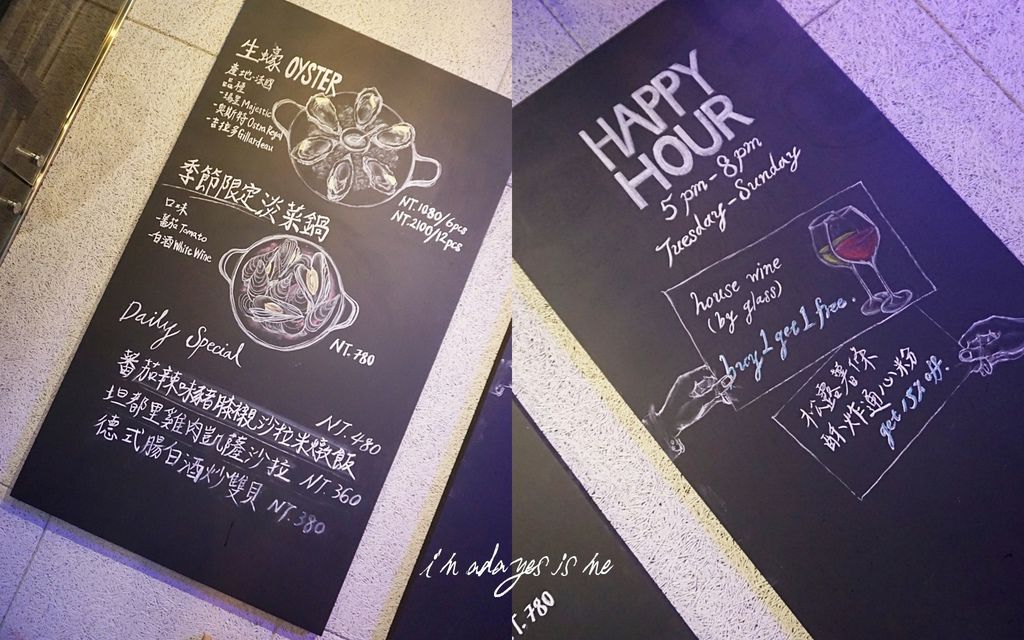 生蠔 OYSTER
產地-法國
品種
-瑪黑 Majestic
-奧斯特 Ostra Regal
-吉拉多 Gillardeau
NT.1080/6pcs
NT.2100/12pcs
季節限定淡菜鍋
口味
-蕃茄 Tomato
-白酒 White Wine
NT.780
Daily Special
蕃茄辣味豬膝襯沙拉米燉飯 NT.480
坦都里雞肉凱薩沙拉 NT.360
德式腸白酒炒雙貝 NT.380
HAPPY
HOUR
5pm-8pm
Tuesday-Sunday
house wine
(by glass)
buy 1 get 1 free.
松露薯條
酥炸通心粉
get 15% off.
T.780